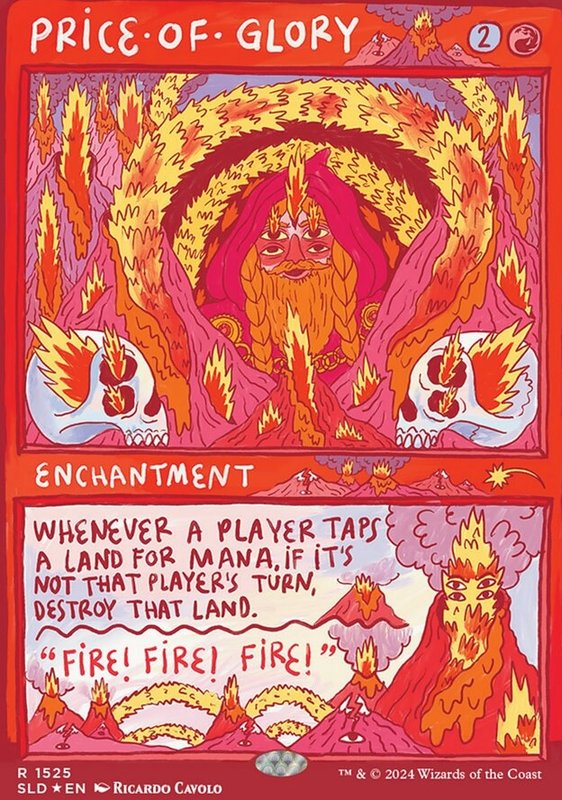 PRICE·OF·GLORY
2
ENCHANTMENT
WHENEVER A PLAYER TAPS
A LAND FOR MANA, IF IT'S
NOT THAT PLAYER'S TURN,
DESTROY THAT LAND.
"FIRE! FIRE! FIRE!"
R 1525
SLD ★ EN Ricardo Cavolo
™ & © 2024 Wizards of the Coast